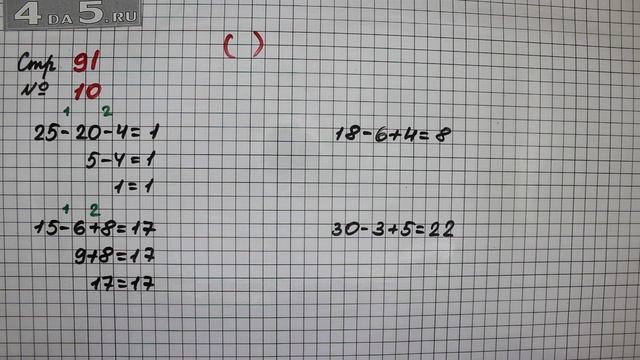 4 DA 5.RU
( )
Стр 91
№ 10
1 2
25-20-4=1
5-4=1
1=1
1 2
15-6+8=17
9+8=17
17=17
18-6+4=8
30-3+5=22